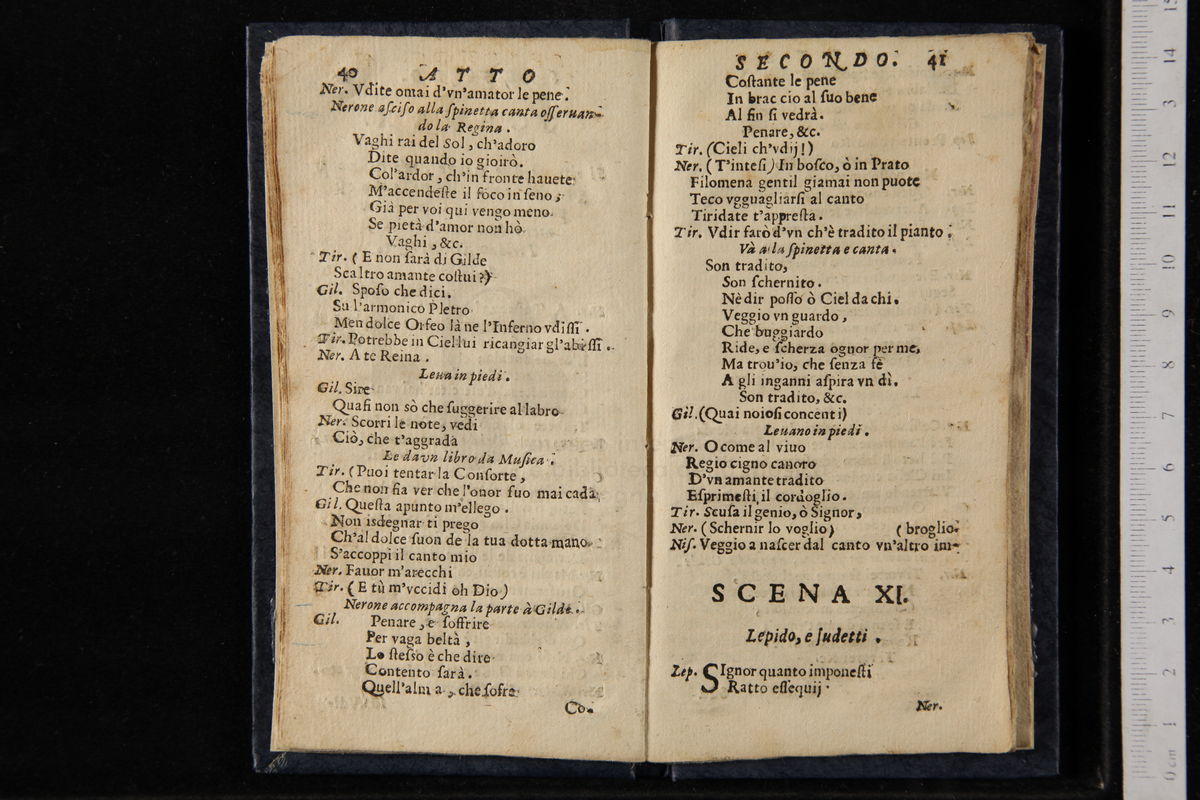 40 ATTO
Ner. Vdite omai d'vn'amator le pene.
Nerone asciso alla spinetta canta osseruan-
do la Regina.
Vaghi rai del Sol, ch'adoro
Dite quando io gioirò.
Col'ardor, ch'in fronte hauete
M'accendeste il foco in seno;
Già per voi qui vengo meno
Se pietà d'amor non hò
Vaghi, &c.
Tir. (E non sarà di Gilde
Scaltro amante costui?)
Gil. Sposo che dici.
Su l'armonico Pletro
Men dolce Orfeo là ne l'Inferno vdissi.
Tir. Potrebbe in Ciel lui ricangiar gl'abissi.
Ner. A te Reina.
Leua in piedi.
Gil. Sire
Quasi non sò che suggerire al labro
Ner. Scorri le note, vedi
Ciò, che t'aggrada
Le da vn libro da Musica.
Tir. (Puoi tentar la Consorte,
Che non fia ver che l'onor suo mai cada,
Gil. Questa apunto m'ellego.
Non isdegnar ti prego
Ch'al dolce suon de la tua dotta mano
S'accoppi il canto mio
Ner. Fauor m'arecchi
Tir. (E tù m'vccidi oh Dio)
Nerone accompagna la parte à Gilde.
Gil. Penare, e soffrire
Per vaga beltà,
Lo stesso è che dire
Contento sarà.
Quell'alma, che sofra
Co.
SECONDO. 41
Costante le pene
In braccio al suo bene
Al fin si vedrà.
Penare, &c.
Tir. (Cieli ch'vdij!)
Ner. (T'intesi) In bosco, ò in Prato
Filomena gentil giamai non puote
Teco vgguagliarsi al canto
Tiridate t'appresta.
Tir. Vdir farò d'vn ch'è tradito il pianto.
Và a la spinetta e canta.
Son tradito,
Son schernito.
Nè dir posso ò Ciel da chi.
Veggio vn guardo,
Che buggiardo
Ride, e scherza ognor per me,
Ma trou'io, che senza fè
A gli inganni aspira vn dì.
Son tradito, &c.
Gil. (Quai noiosi concenti)
Leuano in piedi.
Ner. O come al viuo
Regio cigno canoro
D'vn amante tradito
Esprimesti il cordoglio.
Tir. Scusa il genio, ò Signor,
Ner. (Schernir lo voglio) (broglio.
Nis. Veggio a nascer dal canto vn'altro im-
SCENA XI.
Lepido, e sudetti.
Lep. SIgnor quanto imponesti
Ratto essequij.
Ner.